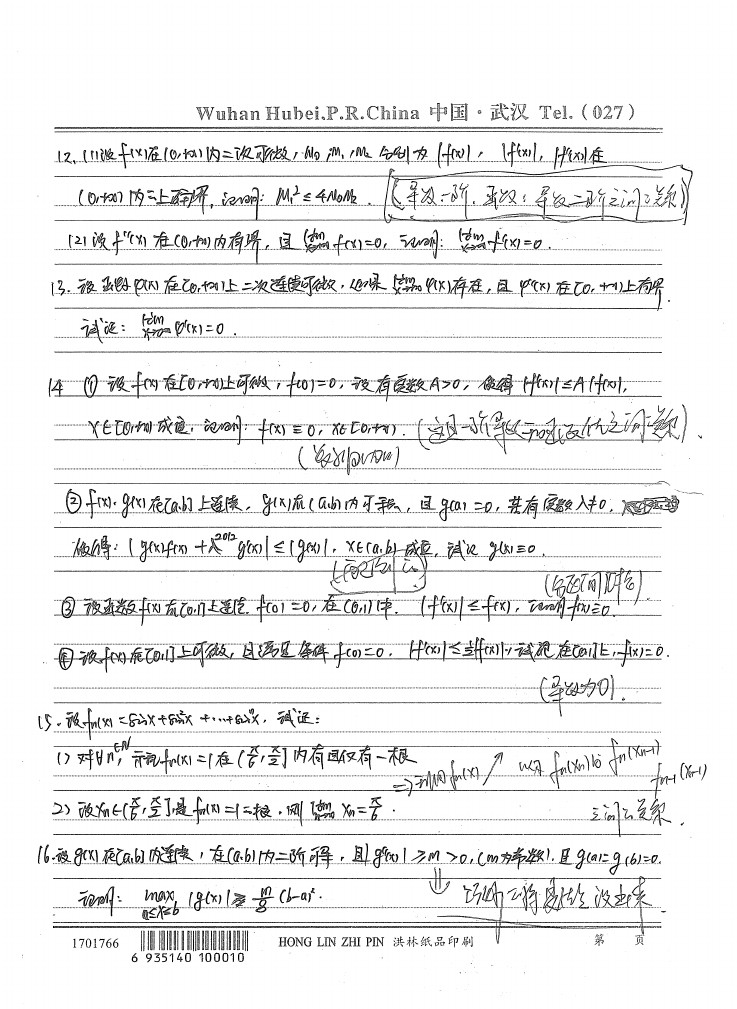 Wuhan Hubei.P.R.China 中国·武汉 Tel.(027)
12. (1) 设 f(x) 在 (0,+∞) 内二次可微, M₀, M₁, M₂ 分别为 |f(x)|, |f'(x)|, |f''(x)| 在
(0,+∞) 内上确界, 证明: M₁² ≤ 4M₀M₂. (导数一阶, 函数, 导数二阶之间的关系)
(2) 设 f''(x) 在 (0,+∞) 内有界, 且 lim f(x)=0, 证明: lim f'(x)=0.
13. 设函数 φ(x) 在 [0,+∞) 上二次连续可微, 如果 lim φ(x) 存在, 且 φ''(x) 在 [0,+∞) 上有界.
试证: lim φ'(x)=0.
14 ① 设 f(x) 在 [0,+∞) 上可微, f(0)=0, 设有实数 A>0, 使得 |f'(x)| ≤ A|f(x)|,
x∈[0,+∞) 成立, 证明: f(x) ≡ 0, x∈[0,+∞).
② f(x), g(x) 在 [a,b] 上连续, g(x) 在 (a,b) 内可导, 且 g(a)=0, 共有实数 λ≠0,
使得: |g(x)f(x) + λ²⁰¹² g'(x)| ≤ |g(x)|, x∈(a,b) 成立, 试证 g(x)≡0.
③ 设函数 f(x) 在 [0,1] 上连续 f(0)=0, 在 (0,1) 中, |f'(x)| ≤ f(x), 证明 f(x)≡0.
④ 设 f(x) 在 [0,1] 上可微, 且满足条件 f(0)=0, |f'(x)| ≤ ½|f(x)|, 试证 在 [0,1] 上, f(x)=0.
(导数为0).
15. 设 fn(x) = sinx + sin²x + ... + sinⁿx, 试证:
1) 对∀n∈N, 方程 fn(x)=1 在 (π/6, π/2] 内有且仅有一根
⇒ 利用 fn(x) ↗ 以及 fn(xn) 与 fn(xn-1) fn-1(xn-1)
2) 设 xn∈(π/6, π/2] 是 fn(x)=1 的根, 则 lim xn = π/6.
之间的关系.
16. 设 g(x) 在 [a,b] 内连续, 在 (a,b) 内二阶可导, 且 |g''(x)| ≥ m > 0, (m为常数), 且 g(a)=g(b)=0.
证明: max a≤x≤b |g(x)| ≥ m/8 (b-a)².
1701766 HONG LIN ZHI PIN 洪林纸品印刷 第 页
6 935140 100010